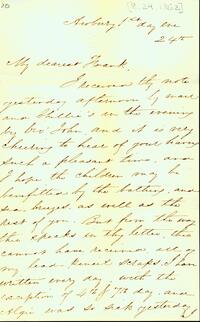 [8.24.1862]
Newbury 1st day eve
24th
My dearest Frank,
I received thy note
yesterday afternoon by mail
and Phillie's in the evening
by Bro. John, and it is very
cheering to hear of your having
such a pleasant time, and
I hope the children may be
benefitted by the bathing, and
sea breezes, as well as the
rest of you. But from the way
thee speaks in thy letter, thee
cannot have received all of
my lead pencil scraps. I have
written every day with the
exception of 4th & 7th day and
Algie was so sick yesterday I